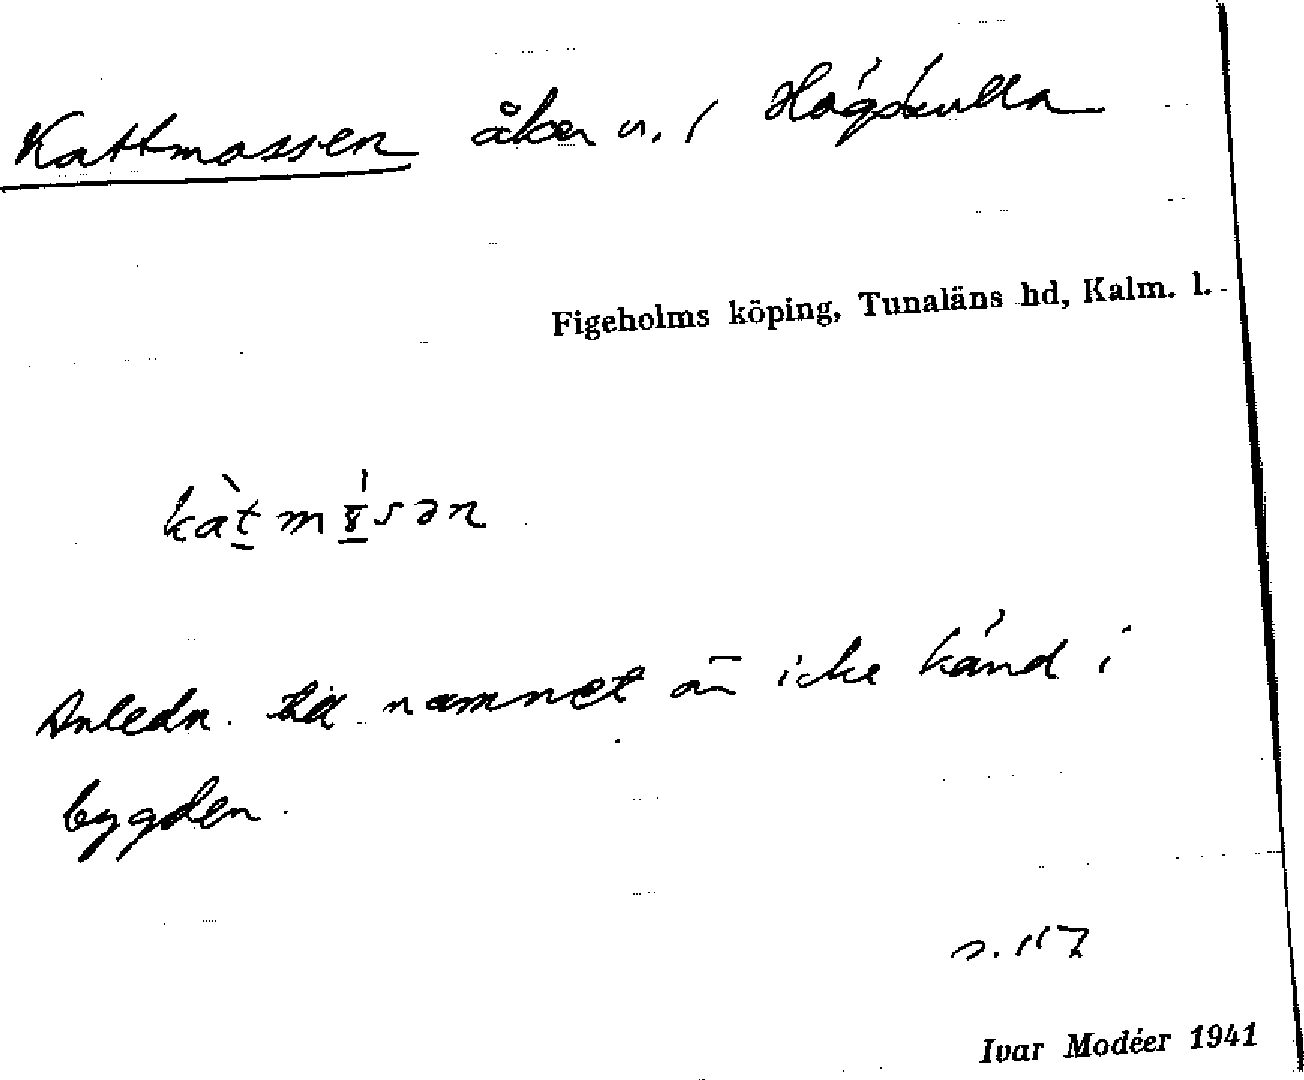 Kattmossen åker n. 1 Högskulla
Figeholms köping, Tunaläns hd, Kalm. l.
Anledn. till namnet är icke känd i
bygden.
s. 117
Ivar Modéer 1941